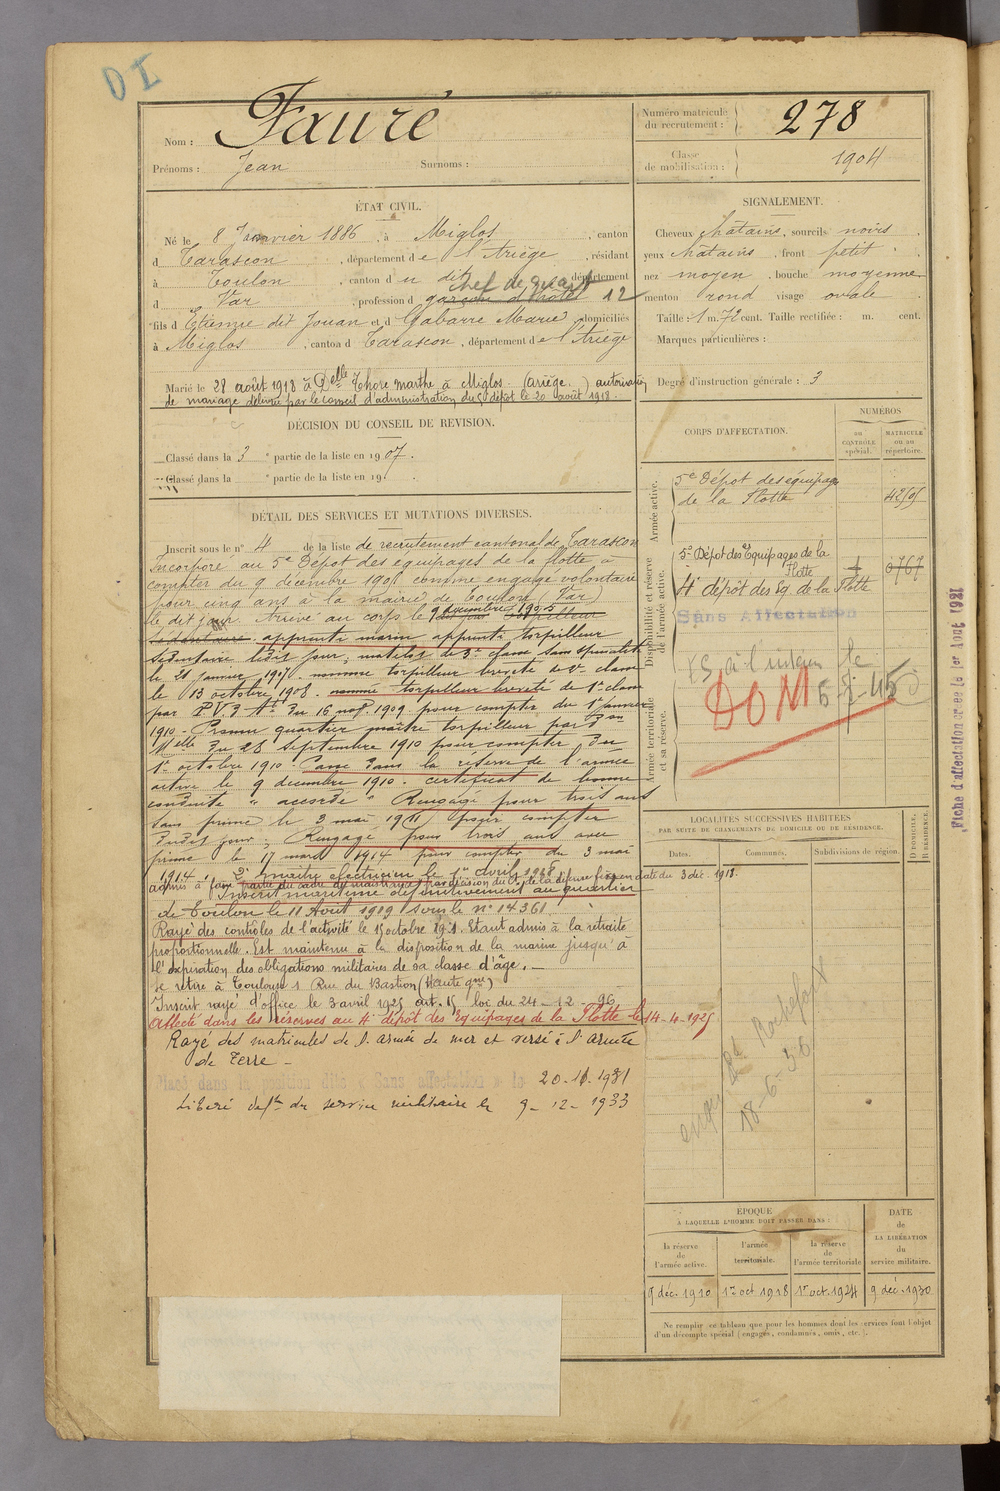 DI
Nom : Fauré
Prénoms : Jean Surnoms :
Numéro matricule du recrutement : 278
Classe de mobilisation : 1904
ÉTAT CIVIL.
Né le 8 Janvier 1886, à Miglos, canton
d Tarascon, département de l'Ariège, résidant
à Toulon, canton d u dit, département
d Var, profession d garçon d'hôtel chef de quart 12
fils d Etienne dit Jouan et d Gabarre Marie domiciliés
à Miglos, canton d Tarascon, département de l'Ariège
Marié le 28 août 1918 à Delle Thore Marthe à Miglos (Ariège) autorisation
de mariage délivrée par le conseil d'administration du 5e dépôt le 20 août 1918.
SIGNALEMENT.
Cheveux châtains, sourcils noirs
yeux châtains, front petit
nez moyen, bouche moyenne
menton rond visage ovale
Taille : 1 m. 72 cent. Taille rectifiée : m. cent.
Marques particulières :
Degré d'instruction générale : 3
DÉCISION DU CONSEIL DE REVISION.
Classé dans la 3e partie de la liste en 1907.
Classé dans la e partie de la liste en 19 .
DÉTAIL DES SERVICES ET MUTATIONS DIVERSES.
Inscrit sous le n° 4 de la liste de recrutement cantonal de Tarascon
Incorporé au 5e Dépôt des équipages de la flotte à
compter du 9 décembre 1905 comme engagé volontaire
pour cinq ans à la mairie de Toulon (Var)
le dit jour. Arrivé au corps le 9 décembre 1905
apprenti marin apprenti torpilleur
sédentaire ledit jour; matelot de 3e classe sans spécialité
le 21 janvier 1907. nommé torpilleur breveté de 2e classe
le 13 octobre 1908. nommé torpilleur breveté de 1e classe
par P.V.3 du 16 nov. 1909 pour compter du 1 janvier
1910 - Promu quartier maître torpilleur par Don
Mielle du 28 septembre 1910 pour compter du
1er octobre 1910. Passé dans la réserve de l'armée
active le 9 décembre 1910. certificat de bonne
conduite "accordé" Rengagé pour trois ans
sans prime le 3 mai 1911 pour compter
dudit jour; Rengagé pour trois ans avec
prime le 17 mars 1914 pour compter du 3 mai
1914. 2e maître électricien le 1er avril 1918
admis à faire partie du cadre de maistrance par décision du de la défense fixe en date du 3 déc. 1918.
Inscrit maritime définitivement au quartier
de Toulon le 11 Août 1919 sous le n° 14361.
Rayé des contrôles de l'activité le 15 octobre 1921. Etant admis à la retraite
proportionnelle. Est maintenu à la disposition de la marine jusqu'à
l'expiration des obligations militaires de sa classe d'âge.
Se retire à Toulouse 1 Rue du Bastion (Haute Gne)
Inscrit rayé d'office le 3 avril 1925 art. 15 loi du 24-12-96
Affecté dans les réserves au 4e dépôt des Equipages de la Flotte le 14-4-1925
Rayé des matricules de l'armée de mer et versé à l'armée
de Terre -
Placé dans la position dite « Sans affectation » le 20.11.1931
Libéré deft du service militaire le 9-12-1933
CORPS D'AFFECTATION.
NUMÉROS
AU CONTRÔLE spécial.
MATRICULE ou au répertoire.
Armée active.
5e Dépôt des équipages
de la Flotte 4255
Disponibilité et réserve de l'armée active.
5e Dépôt des Equipages de la
Flotte 0767
4e dépôt des Eq. de la Flotte
Sans Affectation
Armée territoriale et sa réserve.
DOM
Fiche d'affectation créée le 1er Aout 1921
LOCALITÉS SUCCESSIVES HABITÉES
PAR SUITE DE CHANGEMENTS DE DOMICILE OU DE RÉSIDENCE.
Dates. Communes. Subdivisions de région.
D DOMICILE.
R RÉSIDENCE.
Rochefort
18-6-36
ÉPOQUE
À LAQUELLE L'HOMME DOIT PASSER DANS :
DATE de LA LIBÉRATION du service militaire.
la réserve de l'armée active.
l'armée territoriale.
la réserve de l'armée territoriale
9 déc. 1910 1er oct 1918 1er oct. 1924 9 déc. 1930
Ne remplir ce tableau que pour les hommes dont les services font l'objet
d'un décompte spécial (engagés, condamnés, omis, etc.).